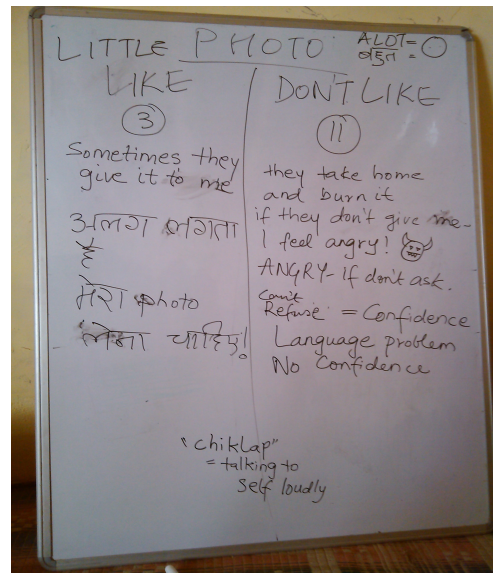 LITTLE PHOTO
ALOT = O
बहुत =
LIKE
3
Sometimes they
give it to me
अलग लगता
है
मेरा photo
लेना चाहिए!
DON'T LIKE
11
they take home
and burn it
if they don't give me-
I feel angry!
ANGRY- If don't ask.
can't
Refuse = Confidence
Language problem
No Confidence
"chiklap"
= talking to
self loudly